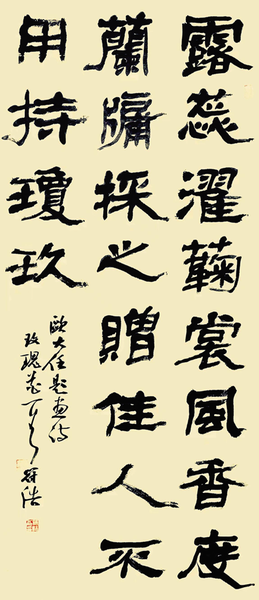 露蕊濯鞠裳風香度
蘭牖採之贈佳人不
用持瓊玖
歐大任題畫詩
玫瑰花 符浩